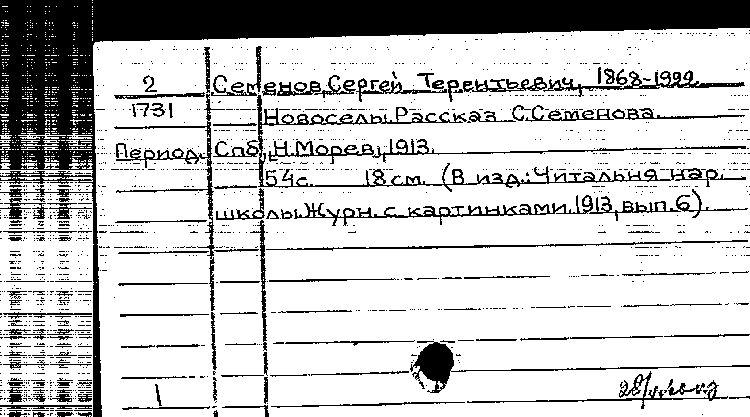 2 Семенов, Сергей Терентьевич, 1868-1922.
1731 Новоселы. Рассказ С. Семенова.
Период. Спб., Н. Морев, 1913.
54с. 18см. (В изд.: Читальня нар.
школы. Журн. с картинками. 1913, вып. 6).